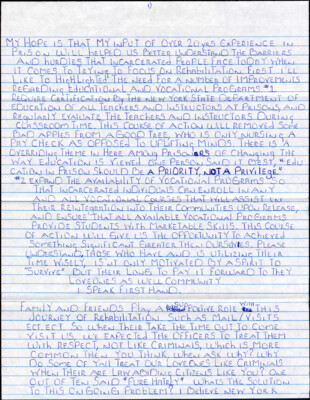 My Hope is that my input of over 20 yrs experience in
prison, will help us better understand the barriers
and hurdles that incarcerated people face today when
it comes to trying to focus on rehabilitation. First I'll
like to highlighted the need for a number of improvements
regarding educational and vocational programs. #1
Require certification by the New York State Department of
Education of all teachers and instructors at prisons, and
regularly evaluate the teachers and instructors during
classroom time. This course of action will removed some
bad apples from a good tree, who is only pursuing a
pay check as opposed to uplifting minds. There is a
overriding theme in here among prisoners of changing the
way education is viewed. One person said it best, "Edu
cation in prison should be a Priority, not a Privilege."
#2 Expand the availability of vocational programs so
that incarcerated individuals can enroll in any
and all vocational courses that will assist in
their reintegration into their communities upon release,
and ensure that all available vocational programs
provide students with marketable skills. This course
of action will give us the opportunity to achieved
something significant greater then ourselves. Please
understand, those who have and is utilizing their
time wisely, is not only motivated by a spirit to
"survive". But their long to pay it forward to they
loveones as well community
I speak first hand.
Family and friends play a positive role with this
journey of rehabilitation. Such as mail/visits
ect. ect. So when their take the time out to come
visit us, we expected the officers to treat them
with respect, not like criminals, which is more
common then you think. When ask why? Why
do some of you treat our loveones like criminals
when their are law abiding citizens like you? One
out of ten said "pure hately". Whats the solution
to this on going problem? I believe New York